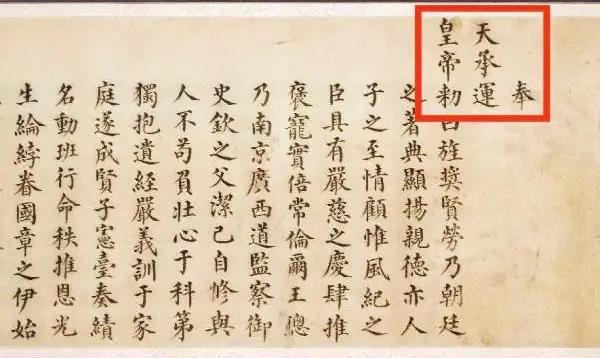 奉
天承運
皇帝勅曰旌奬賢勞乃朝廷
之著典顯揚親德亦人
子之至情顧惟風紀之
臣具有嚴慈之慶肆推
褒寵實倍常倫爾王聰
乃南京廣西道監察御
史欽之父潔己自脩與
人不苟負壯心于科第
獨抱遺經嚴義訓于家
庭遂成賢子憲臺奏績
名動班行命秩推恩光
生綸綍眷國章之伊始